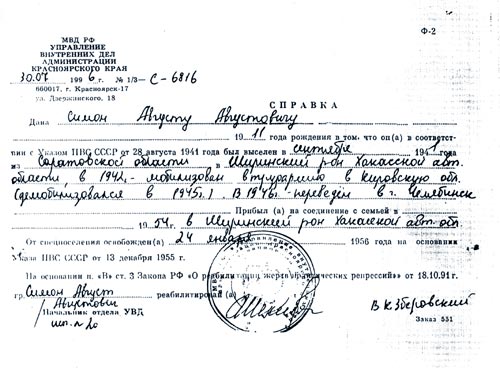 Ф-2
МВД РФ
УПРАВЛЕНИЕ
ВНУТРЕННИХ ДЕЛ
АДМИНИСТРАЦИИ
КРАСНОЯРСКОГО КРАЯ
30.07 1996 г. № 1/3— С-6816
660017, г. Красноярск-17
ул. Дзержинского, 18
СПРАВКА
Дана Симон Августу Августовичу
1911 года рождения в том, что он(а) в соответст-
вии с Указом ПВС СССР от 28 августа 1941 года был выселен в сентябре 1941 года
из Саратовской области в Ширинский р-он Хакасской авт.
области, в 1942г.- мобилизован в трудармию в Кировскую обл.
(демобилизовался в 1945г.). В 1946г. переведён в г. Челябинск
Прибыл (а) на соединение с семьей в
1954г. в Ширинский р-он Хакасской авт. обл.
От спецпоселения освобожден(а) 24 января 1956 года на основании
Указа ПВС СССР от 13 декабря 1955 г.
На основании п. «В» ст. 3 Закона РФ «О реабилитации жертв политических репрессий» от 18.10.91 г.
гр. Симон Август реабилитирован (а)
Августович
Начальник отдела УВД В.К. Зберовский
Заказ 551